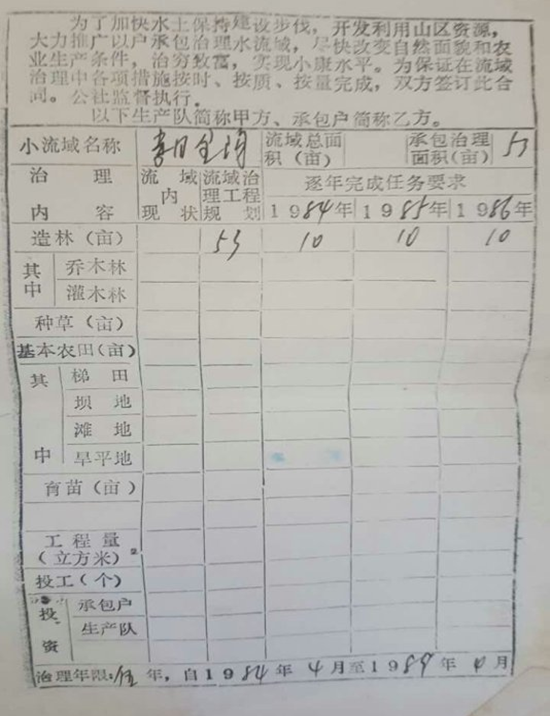 为了加快水土保持建设步伐，开发利用山区资源，
大力推广以户承包治理水流域，尽快改变自然面貌和农
业生产条件，治穷致富，实现小康水平。为保证在流域
治理中各项措施按时、按质、按量完成，双方签订此合
同。公社监督执行。
以下生产队简称甲方、承包户简称乙方。
小流域名称 流域总面积（亩） 承包治理面积（亩） 53
治理内容 流域内现状 流域治理工程规划 逐年完成任务要求
1984年 1985年 1986年
造林（亩） 53 10 10 10
其中 乔木林
灌木林
种草（亩）
基本农田（亩）
其中 梯田
坝地
滩地
旱平地
育苗（亩）
工程量（立方米）
投工（个）
投资 承包户
生产队
治理年限：伍年，自1984年4月至198年4月